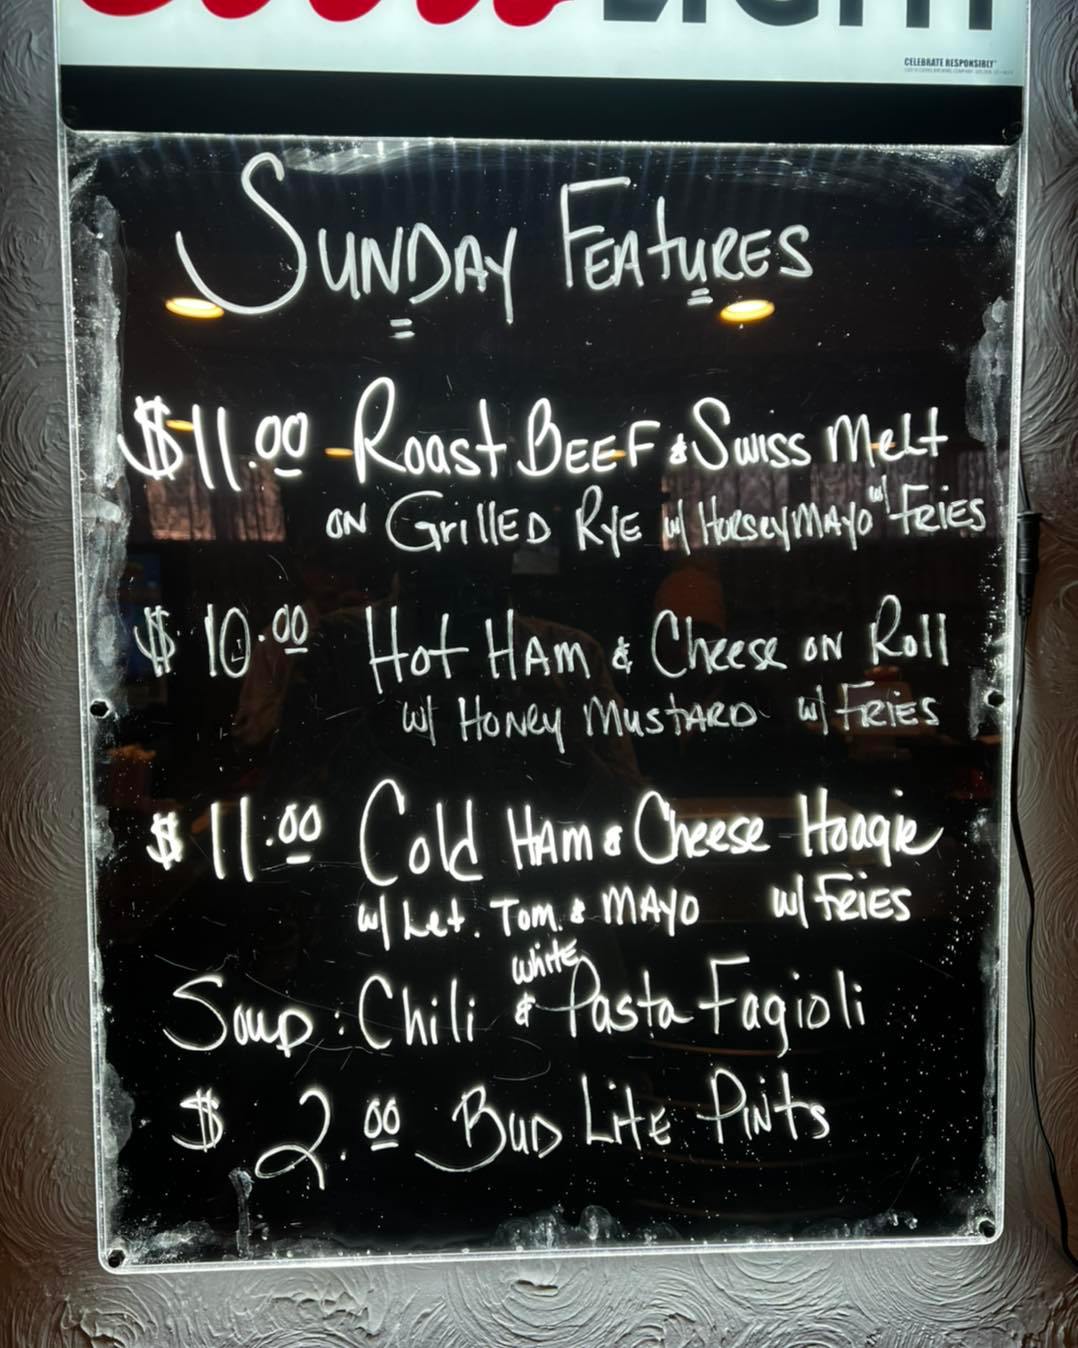 Coors LIGHT
CELEBRATE RESPONSIBLY
SUNDAY FEATURES
$11.00 ROAST BEEF & SWISS MELT
ON GRILLED RYE w/ HORSEY MAYO w/ FRIES
$10.00 HOT HAM & CHEESE ON ROLL
w/ HONEY MUSTARD w/ FRIES
$11.00 Cold HAM & Cheese Hoagie
w/ Let. Tom. & MAYO w/ FRIES
white
Soup: Chili & Pasta Fagioli
$2.00 BUD LITE PINTS